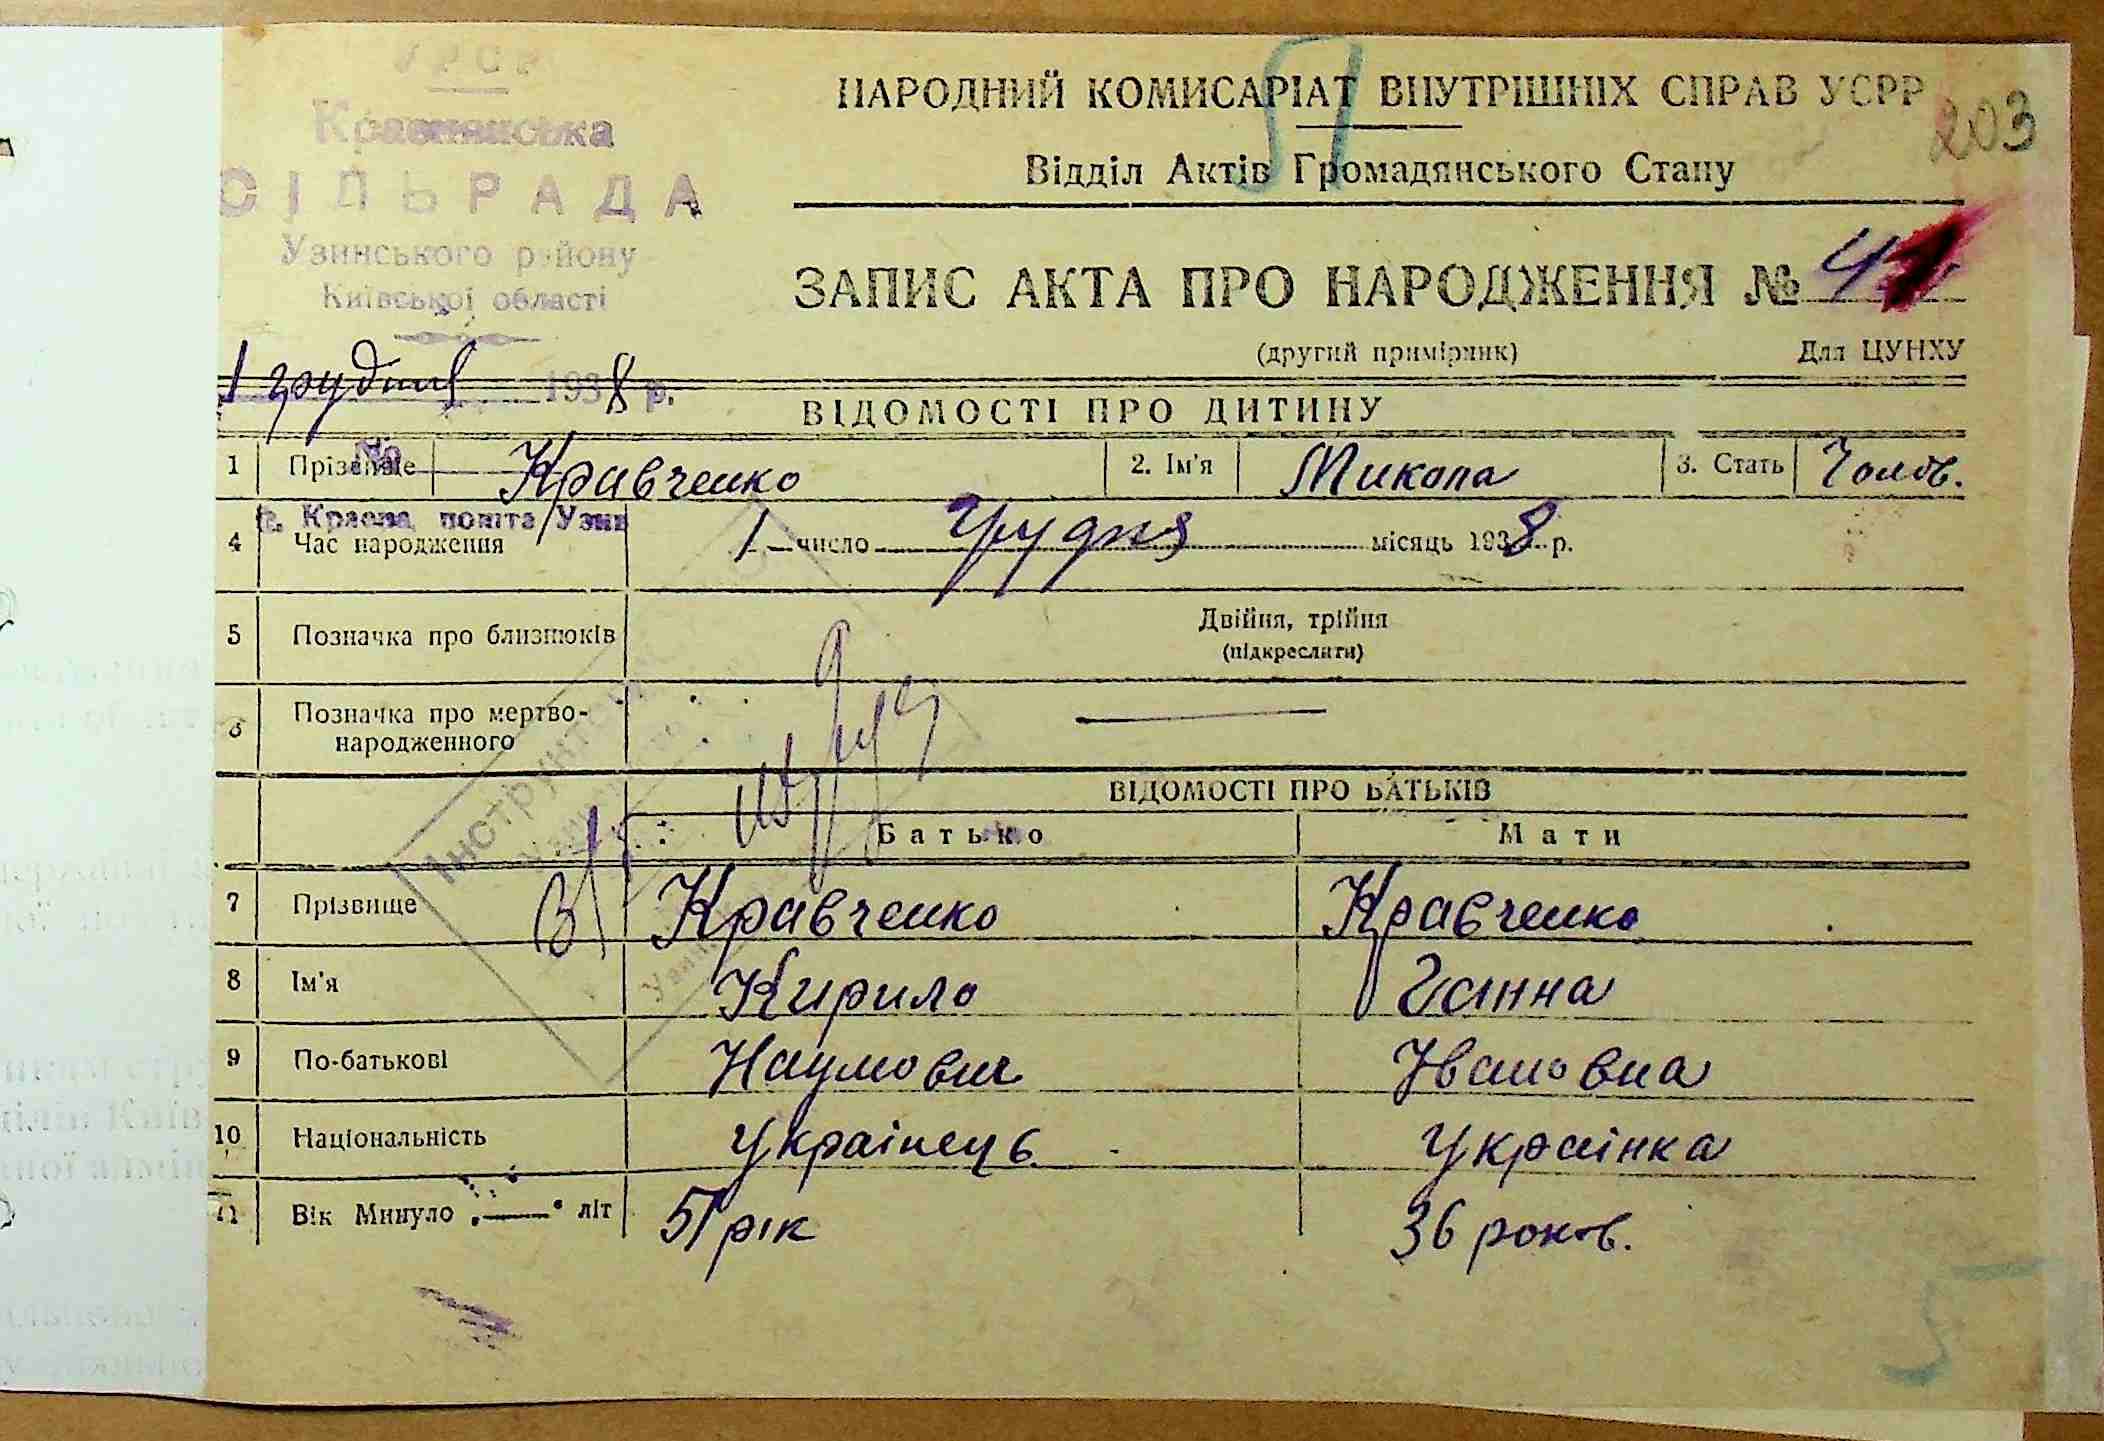 УРСР
Краснянська
СІЛЬРАДА
Узинського району
Київської області
1 грудня 1938 р.
№
с. Красна, пошта Узин
НАРОДНИЙ КОМИСАРІАТ ВНУТРІШНІХ СПРАВ УСРР
51
203
Відділ Актів Громадянського Стану
ЗАПИС АКТА ПРО НАРОДЖЕННЯ №
(другий примірник) Для ЦУНХУ
ВІДОМОСТІ ПРО ДИТИНУ
1 Прізвище Кравченко 2. Ім'я Микола 3. Стать Чолов.
4 Час народження 1 число грудня місяць 1938 р.
5 Позначка про близнюків Двійня, трійня
(підкреслити)
6 Позначка про мертво-
народженного
ВІДОМОСТІ ПРО БАТЬКІВ
Батько Мати
7 Прізвище Кравченко Кравченко
8 Ім'я Кирило Ганна
9 По-батькові Наумович Івановна
10 Національність українець українка
11 Вік Минуло — літ 51 рік 36 років.
5